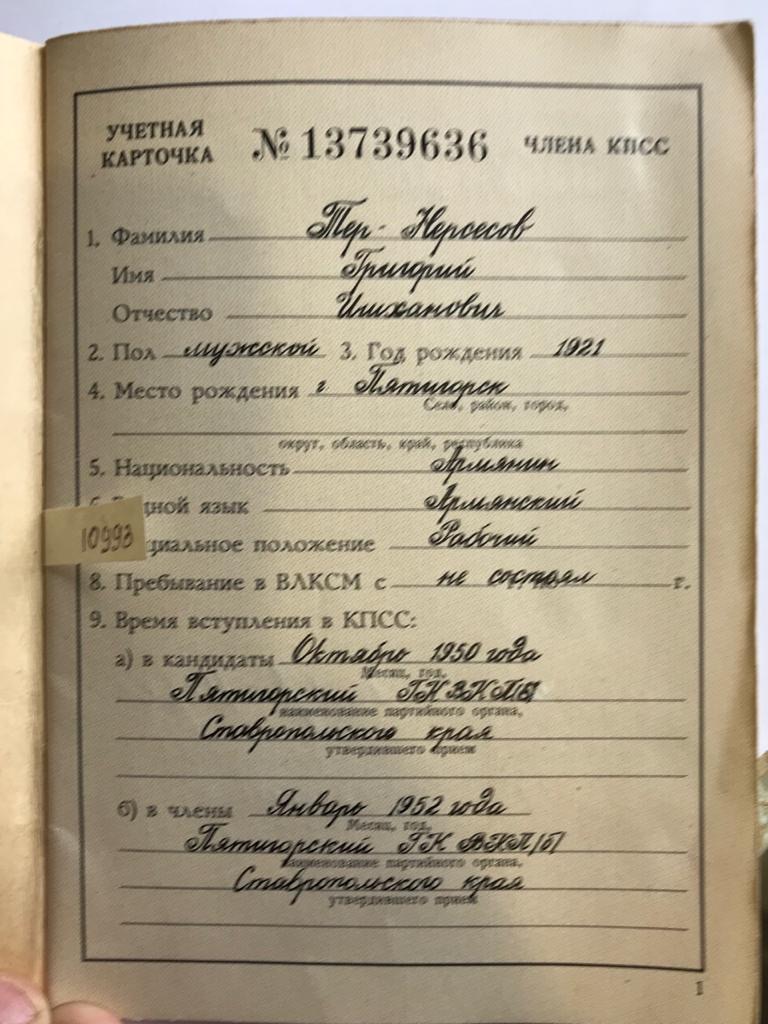 УЧЕТНАЯ КАРТОЧКА № 13739636 ЧЛЕНА КПСС
1. Фамилия Тер-Нерсесов
Имя Григорий
Отчество Ишханович
2. Пол мужской 3. Год рождения 1921
4. Место рождения г Пятигорск
Село, район, город,
округ, область, край, республика
5. Национальность Армянин
язык Армянский
10993
положение Рабочий
8. Пребывание в ВЛКСМ с не состоял г.
9. Время вступления в КПСС:
а) в кандидаты Октябрь 1950 года
Месяц, год,
Пятигорский ГК ВКП/б/
наименование партийного органа,
Ставропольского края
утвердившего прием
б) в члены Январь 1952 года
Месяц, год,
Пятигорский ГК ВКП/б/
наименование партийного органа,
Ставропольского края
утвердившего прием
1